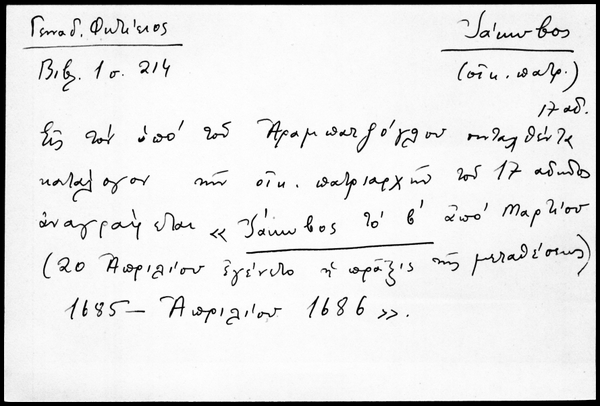 Γενναδ. Φωτίειος
Ἰάκωβος
Βιβλ. 1 σ. 214
(οἰκ. πατρ.)
17 αἰ.
Εἰς τόν ὑπό τοῦ Ἀραμπατζόγλου συνταχθέντα
κατάλογον τῶν οἰκ. πατριαρχῶν τοῦ 17 αἰῶνος
ἀναγράφεται « Ἰάκωβος τό β' ἀπό Μαρτίου
(20 Ἀπριλίου ἐγένετο ἡ πρᾶξις τῆς μεταθέσεως)
1685 – Ἀπριλίου 1686 ».